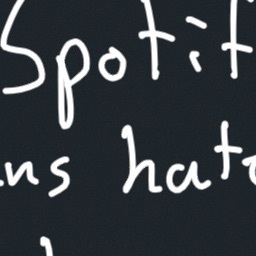 Spotif
ns hate